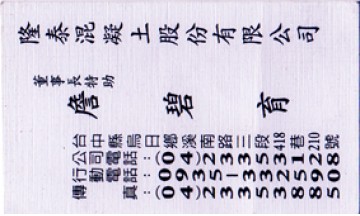 隆泰混凝土股份有限公司
董事長特助
詹碧育
台中縣烏日鄉溪南路三段418巷210號
公司電話：(04)
行動電話：
傳真：(04)